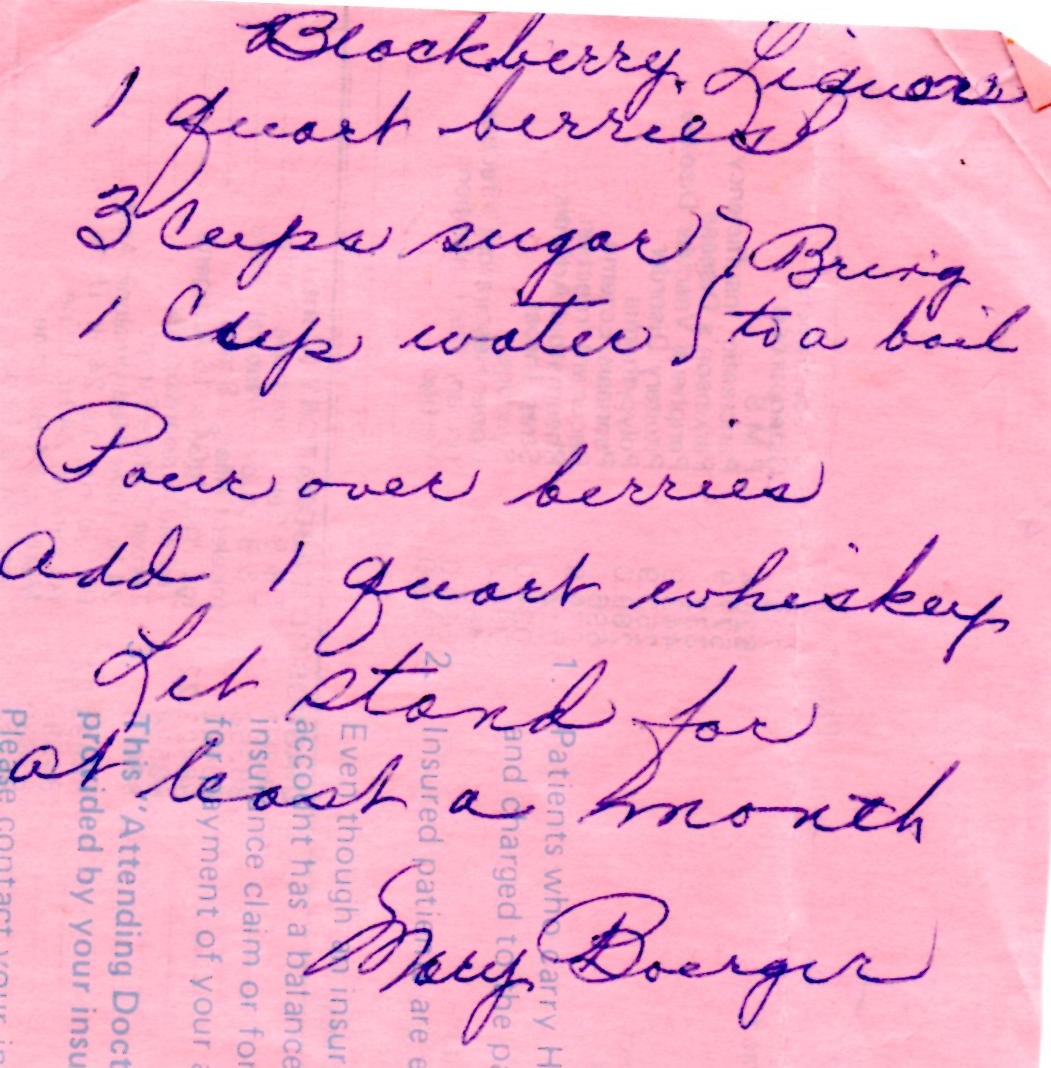 Blackberry Liquors
1 quart berries
3 cups sugar } Bring
1 Cup water } to a boil
Pour over berries
add 1 quart whiskey
Let stand for
at least a month
Mary Boerger
1. Patients who carry H
and charged to the pa
2. Insured patients are e
Even though an insur
account has a balance
insurance claim or for
for payment of your a
This "Attending Doct
provided by your insu
Please contact your in